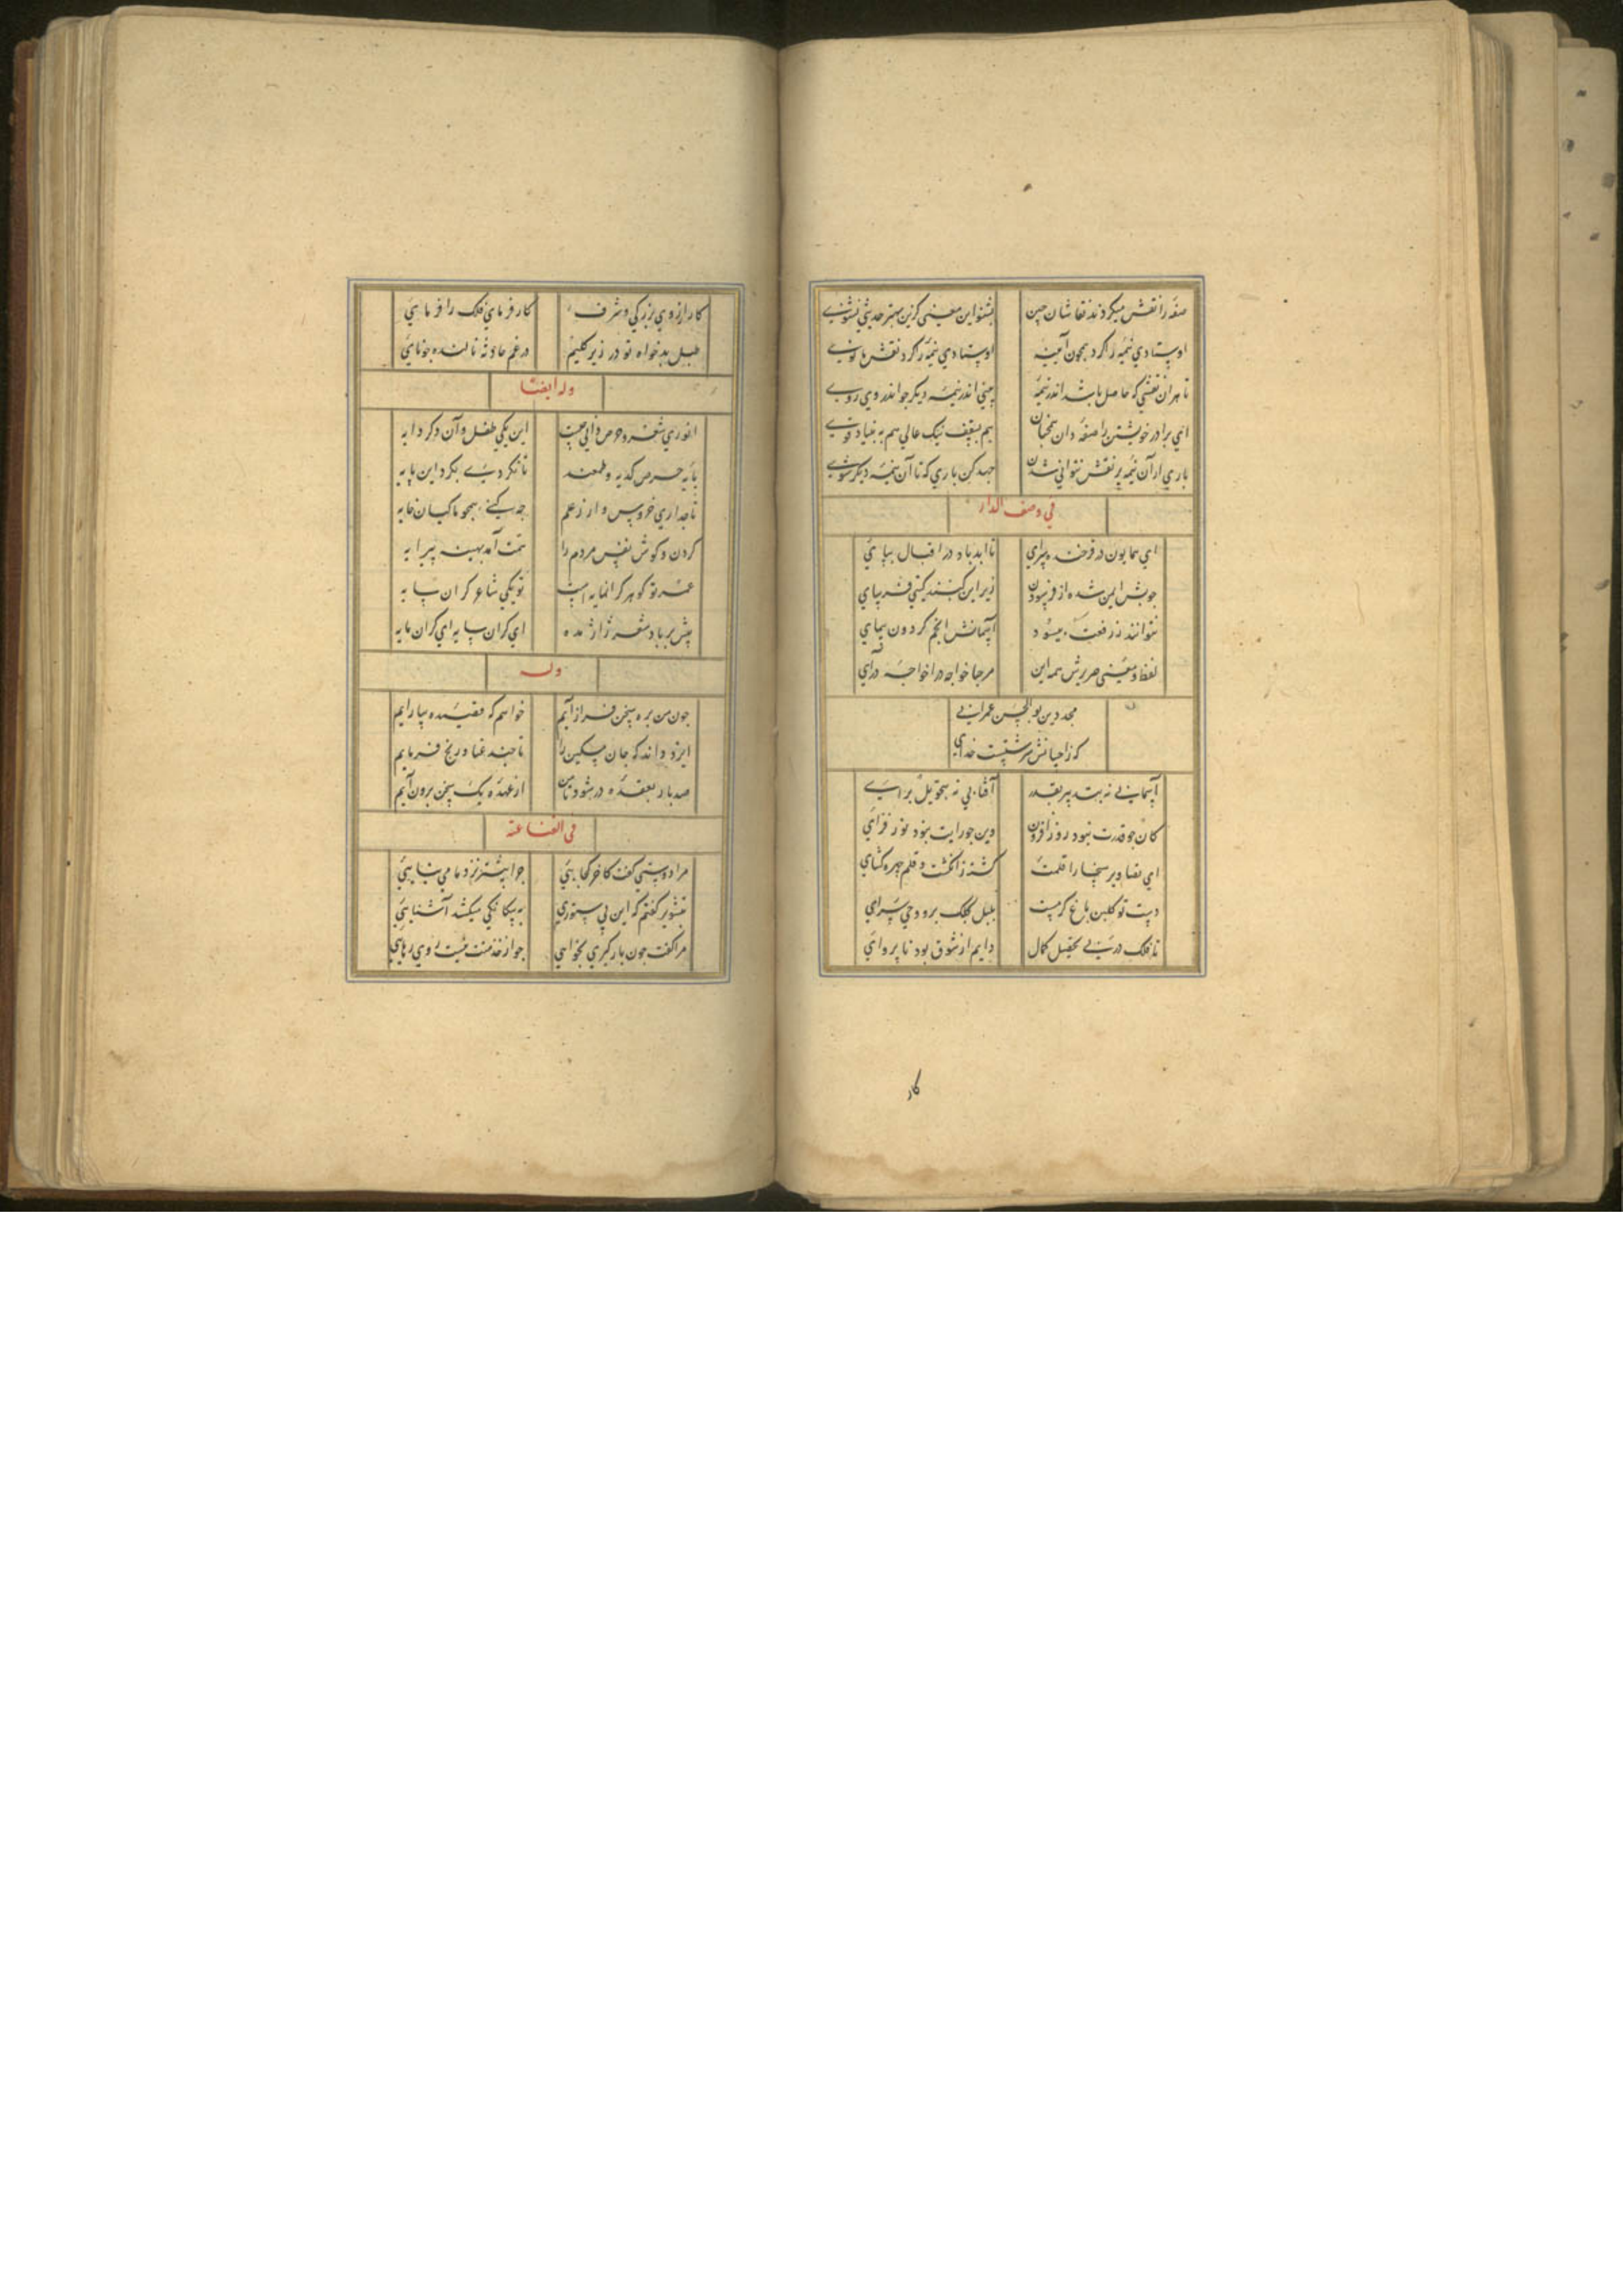 صفه را نقش میکردند نقاشان چین بشنو این معنی کزین بهتر حدیثی نشنوی
اوستادی نیمه را کرد همچون آینه اوستادی نیمه را کرد نقش مانوی
تا هران نقشی که حاصل باشد اندر نیمه بینی اندر نیمه دیگر چو اندر وی روی
ای برادر خویشتن را صفه دان همچنان هم بسقف نیک عالی هم به بنیاد قوی
باری ار آن نیمه پر نقش نتوانی شدن جهد کن باری که تا آن نیمه دیگر شوی
فی وصف الدار
ای همایون در فرخنده سرای تا ابد باد در اقبال بپای
چوبش ایمن شده از فرسودن زیر این گنبد گیتی فرسای
نتوانند ز رفعت پیمود آسمانش انجم گردون پیمای
لفظ و معنی صریرش همه این مرحبا خواجه درا خواجه درآی
مجد دین بو الحسن عمرانی
که ز احسانش سرشتست خدای
آسمانی نه بتدبیر بقدر آفتابی نه بتحویل برای
کان چو قدرت نبود روز افزون دین چو رایت نبود نور فزای
ای تصاویر سخا را قلمت گشته ز انگشت و قلم چهره گشای
دست تو گلبن باغ کرمست بلبل کلک برو وحی سرای
تا فلک در پی تحصیل کمال دایم از شوق بود ناپروای
کار
کار از روی بزرگی و شرف کار فرمای فلک را فرمایی
طبل بدخواه تو در زیر گلیم در غم حادثه نالنده چو نای
وله ایضا
انوری شعر و حرص دانی چیست این یکی طفل و آن دگر دایه
پایه حرص کدیه و طمعند تا نگردی بگرد این پایه
تاجداری خروس وار ز علم چه کنی همچو ماکیان خایه
گردن و گوش نفس مردم را همت آمد بهینه پیرایه
عمر تو گوهر گرانمایه است تو یکی شاعر گران سایه
بیش بر باد شعر ژاژ مده ای گران سایه ای گران مایه
وله
چون من بره سخن فراز آیم خواهم که قصیده بیارایم
ایزد داند که جان مسکین را تا چند عنا و رنج فرمایم
صد بار بعقده در شود تا من از عهده یک سخن برون آیم
فی القناعة
مرا دوستی گفت کآخر کجایی چرا بیشتر نزد ما می نیایی
بتشویر گفتم که این بی ستوری به بیگانگی میکشد آشنایی
مرا گفت چون بارگیری نخواهی چو از خدمتت نیست روی رهایی